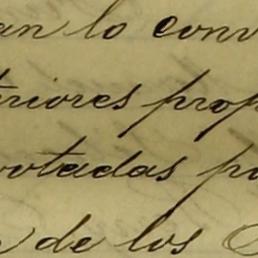 an lo conv
teriores prop
votadas po
de los